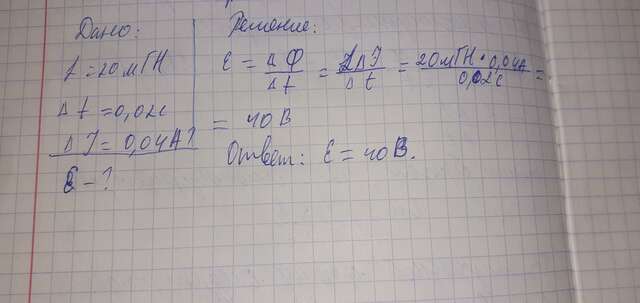 Дано:
L = 20 мГН
Δt = 0,02с
ΔI = 0,04А
ε - ?
Решение:
ε = ΔФ/Δt = LΔI/Δt = 20мГН · 0,04А/0,02с =
= 40 В
Ответ: ε = 40 В.